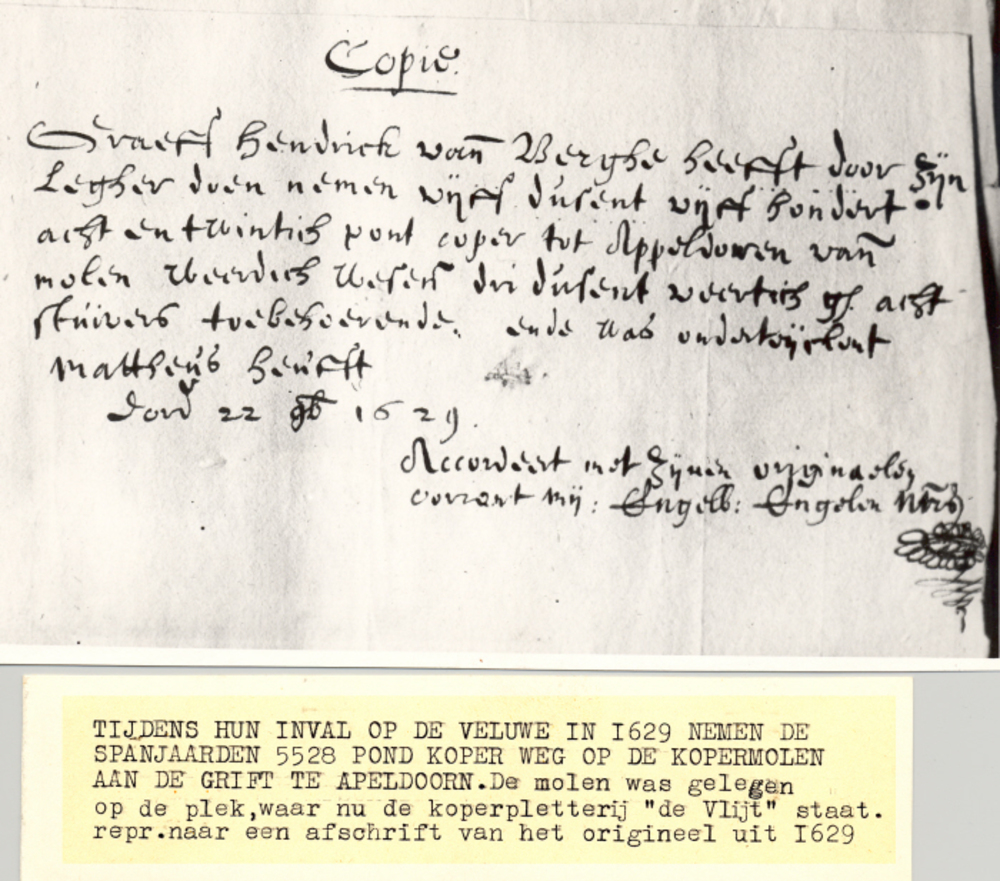 Copie.
Graeff Hendrick vañ Berghe heefft door Zijn
Legher doen nemen vijff dusent vijff hondert
acht entwintich pont coper tot Appeldoren vañ
molen weerdich wesen dri dusent veertich gl. acht
stuivers toebehoerende. ende was ondertijckent
Mattheus Heufft
Dord 22 9b 1629.
Accordeert met Zijnen originaelen
mij: Engelb: Engelen
TIJDENS HUN INVAL OP DE VELUWE IN I629 NEMEN DE
SPANJAARDEN 5528 POND KOPER WEG OP DE KOPERMOLEN
AAN DE GRIFT TE APELDOORN.De molen was gelegen
op de plek,waar nu de koperpletterij "de Vlijt" staat.
repr.naar een afschrift van het origineel uit I629